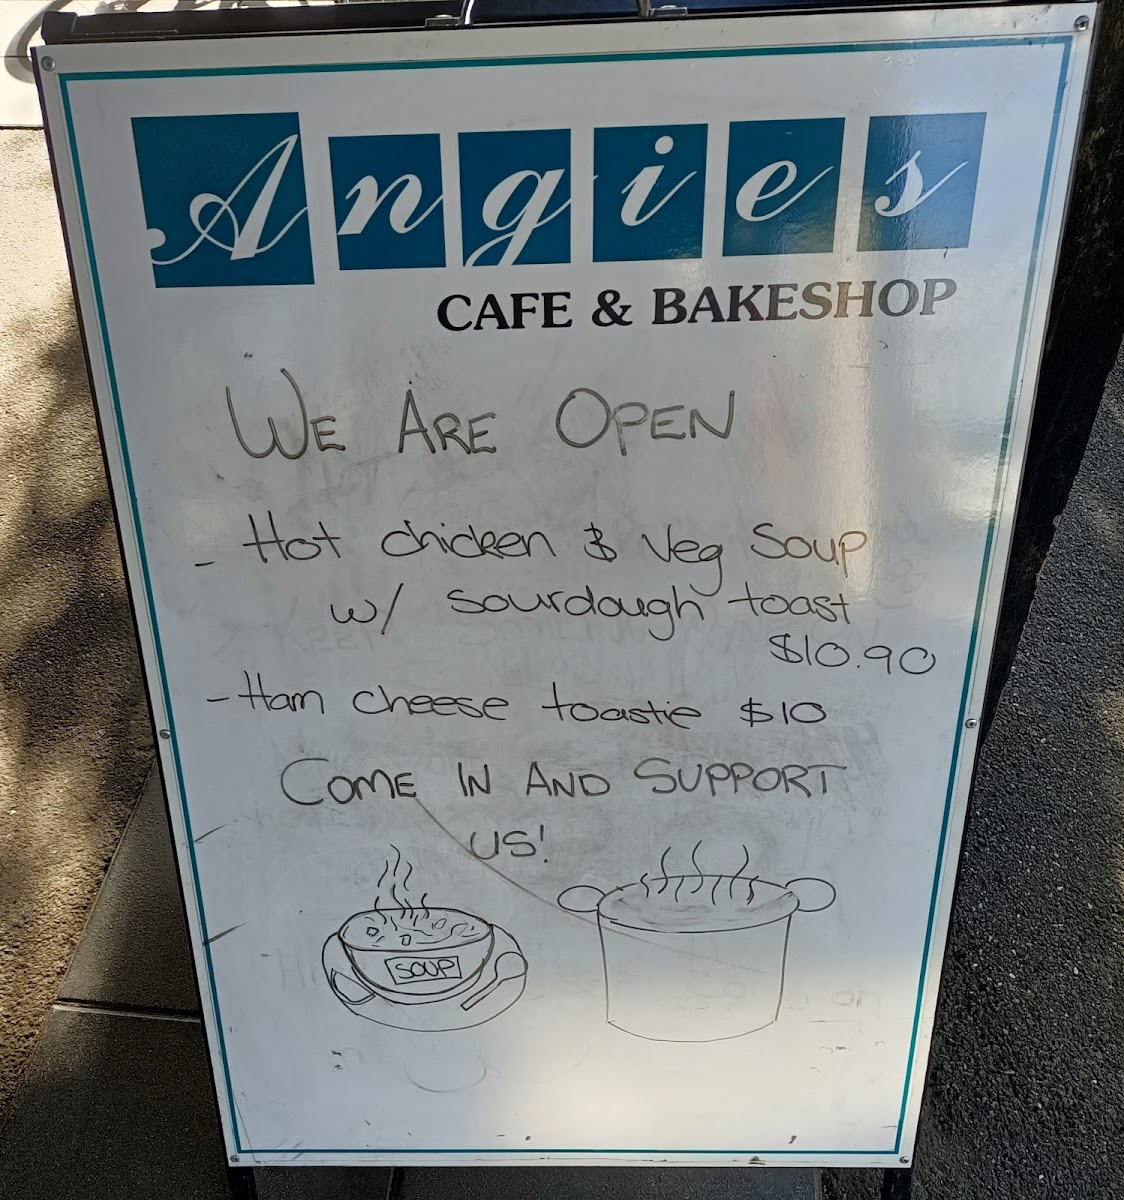 Angies
CAFE & BAKESHOP
WE ARE OPEN
- Hot chicken & Veg Soup
w/ sourdough toast
$10.90
- Ham cheese toastie $10
COME IN AND SUPPORT
US!
SOUP